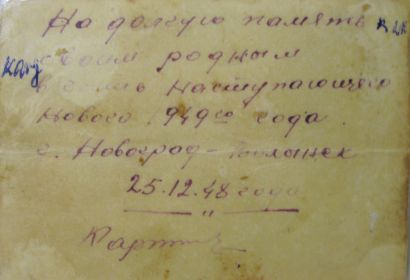 На долгую память
своим родным
в день наступающего
Нового 1949го года.
г. Новоград-Волынск
25.12.48 года
"